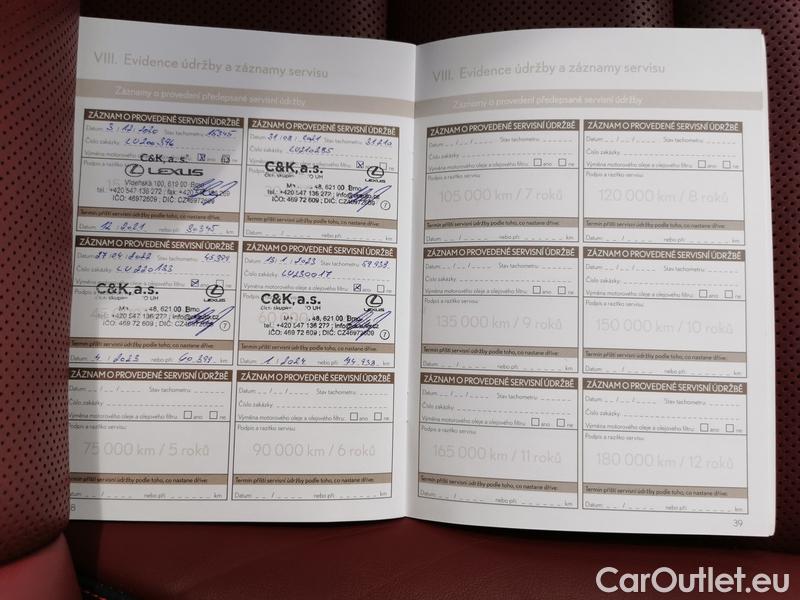 VIII. Evidence údržby a záznamy servisu
Záznamy o provedení předepsané servisní údržby
ZÁZNAM O PROVEDENÉ SERVISNÍ ÚDRŽBĚ
Datum 3 / 12 / 2020 Stav tachometru 15345
Číslo zakázky: LU200396
Výměna motorového ano ne
Podpis a razítko
C&K, a.s.
LEXUS
Vídeňská 100, 619 00 Brno
IČO: 46972609 ; DIČ: CZ46972609
Termín příští servisní údržby podle toho, co nastane dříve:
Datum 12 / 2021 nebo při 30345 km
ZÁZNAM O PROVEDENÉ SERVISNÍ ÚDRŽBĚ
Datum 31 / 08 / 2021 Stav tachometru 31210
Číslo zakázky: LU210285
Výměna motorového oleje a olejového filtru: ano ne
C&K, a.s.
LEXUS
48, 621 00 Brno
tel.: +420 547 136 272 ;
IČO: 469 72 609 ; DIČ: CZ46972609
7
Termín příští servisní údržby podle toho, co nastane dříve:
Datum / nebo při km
ZÁZNAM O PROVEDENÉ SERVISNÍ ÚDRŽBĚ
Datum 27 / 04 / 2022 Stav tachometru 45399
Číslo zakázky: LU220133
Výměna motorového oleje a olejového filtru: ano ne
Podpis a razítko servisu
C&K, a.s.
LEXUS
48, 621 00 Brno
tel.: +420 547 136 272 ;
IČO: 469 72 609 ; DIČ:
7
Termín příští servisní údržby podle toho, co nastane dříve:
4 / 2023 nebo při 60 399 km
ZÁZNAM O PROVEDENÉ SERVISNÍ ÚDRŽBĚ
Datum 13 / 1 / 2023 Stav tachometru 59938
Číslo zakázky: LU230017
Výměna motorového oleje a olejového filtru: ano ne
C&K, a.s.
LEXUS
48, 621 00 Brno
tel.: +420 547 136 272 ;
IČO: 469 72 609 ; DIČ: CZ46972609
7
Termín příští servisní údržby podle toho, co nastane dříve:
Datum 1 / 2024 nebo při 74.938 km
ZÁZNAM O PROVEDENÉ SERVISNÍ ÚDRŽBĚ
Datum / / Stav tachometru
Číslo zakázky:
Výměna motorového oleje a olejového filtru: ano ne
Podpis a razítko servisu
75 000 km / 5 roků
Termín příští servisní údržby podle toho, co nastane dříve:
Datum / nebo při km
ZÁZNAM O PROVEDENÉ SERVISNÍ ÚDRŽBĚ
Datum / / Stav tachometru
Číslo zakázky:
Výměna motorového oleje a olejového filtru: ano ne
Podpis a razítko servisu
90 000 km / 6 roků
Termín příští servisní údržby podle toho, co nastane dříve:
Datum / nebo při km
8
VIII. Evidence údržby a záznamy servisu
Záznamy o provedení předepsané servisní údržby
ZÁZNAM O PROVEDENÉ SERVISNÍ ÚDRŽBĚ
Datum / / Stav tachometru
Číslo zakázky:
Výměna motorového oleje a olejového filtru: ano ne
Podpis a razítko servisu
105 000 km / 7 roků
Termín příští servisní údržby podle toho, co nastane dříve:
Datum / nebo při km
ZÁZNAM O PROVEDENÉ SERVISNÍ ÚDRŽBĚ
Datum / / Stav tachometru
Číslo zakázky:
Výměna motorového oleje a olejového filtru: ano ne
Podpis a razítko servisu
120 000 km / 8 roků
Termín příští servisní údržby podle toho, co nastane dříve:
Datum / nebo při km
ZÁZNAM O PROVEDENÉ SERVISNÍ ÚDRŽBĚ
Datum / / Stav tachometru
Číslo zakázky:
Výměna motorového oleje a olejového filtru: ano ne
Podpis a razítko servisu
135 000 km / 9 roků
Termín příští servisní údržby podle toho, co nastane dříve:
Datum / nebo při km
ZÁZNAM O PROVEDENÉ SERVISNÍ ÚDRŽBĚ
Datum / / Stav tachometru
Číslo zakázky:
Výměna motorového oleje a olejového filtru: ano ne
Podpis a razítko servisu
150 000 km / 10 roků
Termín příští servisní údržby podle toho, co nastane dříve:
Datum / nebo při km
ZÁZNAM O PROVEDENÉ SERVISNÍ ÚDRŽBĚ
Datum / / Stav tachometru
Číslo zakázky:
Výměna motorového oleje a olejového filtru: ano ne
Podpis a razítko servisu
165 000 km / 11 roků
Termín příští servisní údržby podle toho, co nastane dříve:
Datum / nebo při km
ZÁZNAM O PROVEDENÉ SERVISNÍ ÚDRŽBĚ
Datum / / Stav tachometru
Číslo zakázky:
Výměna motorového oleje a olejového filtru: ano ne
Podpis a razítko servisu
180 000 km / 12 roků
Termín příští servisní údržby podle toho, co nastane dříve:
Datum / nebo při km
39
CarOutlet.eu